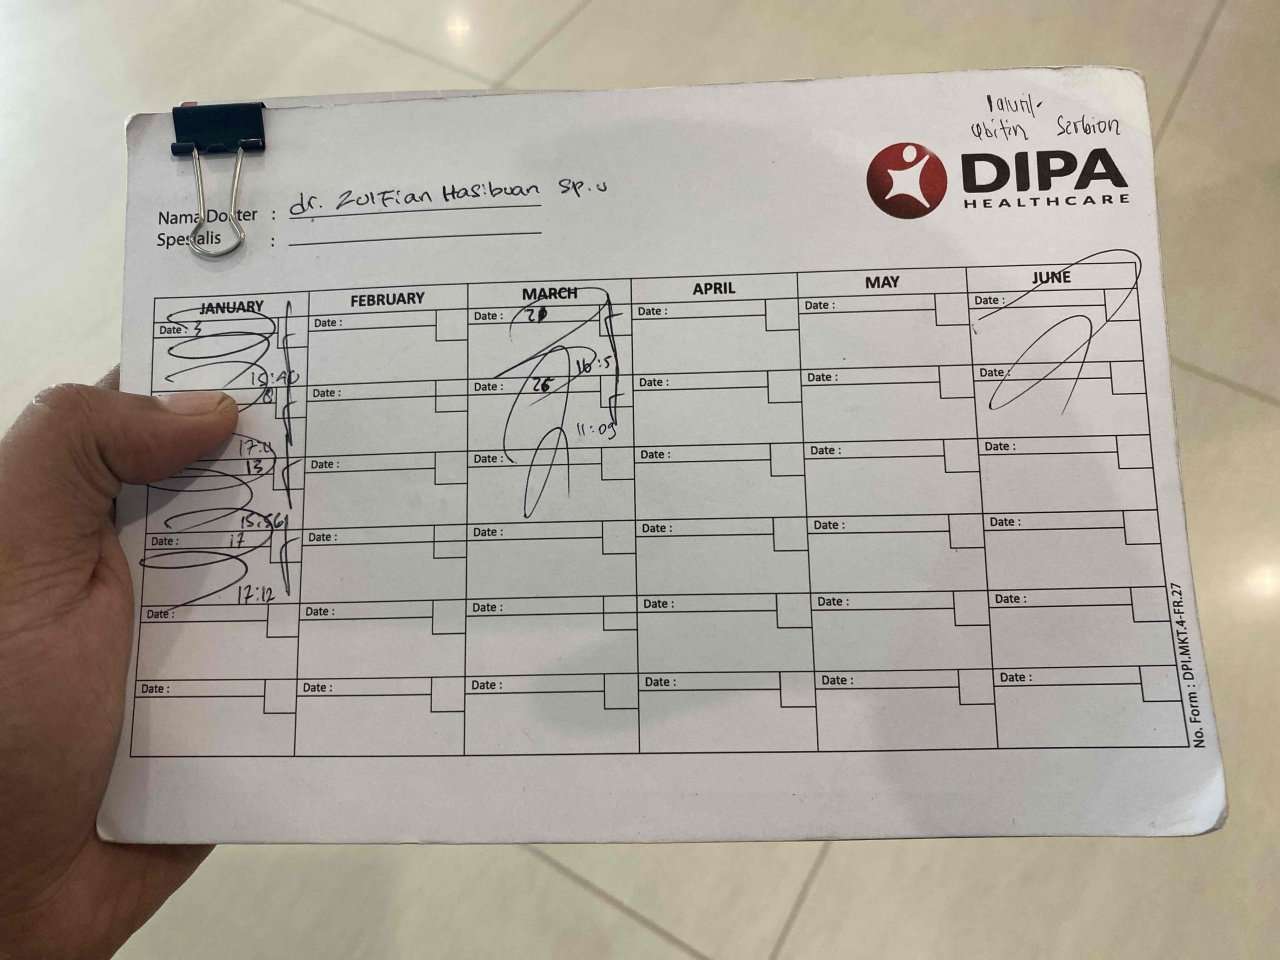 Serbion
DIPA
HEALTHCARE
Nama Dokter : dr. Zulfian Hasibuan Sp.u
Spesialis :
JANUARY FEBRUARY MARCH APRIL MAY JUNE
Date : 3 Date : Date : Date : Date : Date :
15:40 16:5
8 Date : Date : 26 Date : Date : Date :
17:11 11:09
13 Date : Date : Date : Date : Date :
15:56
Date : 17 Date : Date : Date : Date : Date :
17:12
Date : Date : Date : Date : Date : Date :
Date : Date : Date : Date : Date : Date :
No. Form : DPI.MKT.4-FR.27